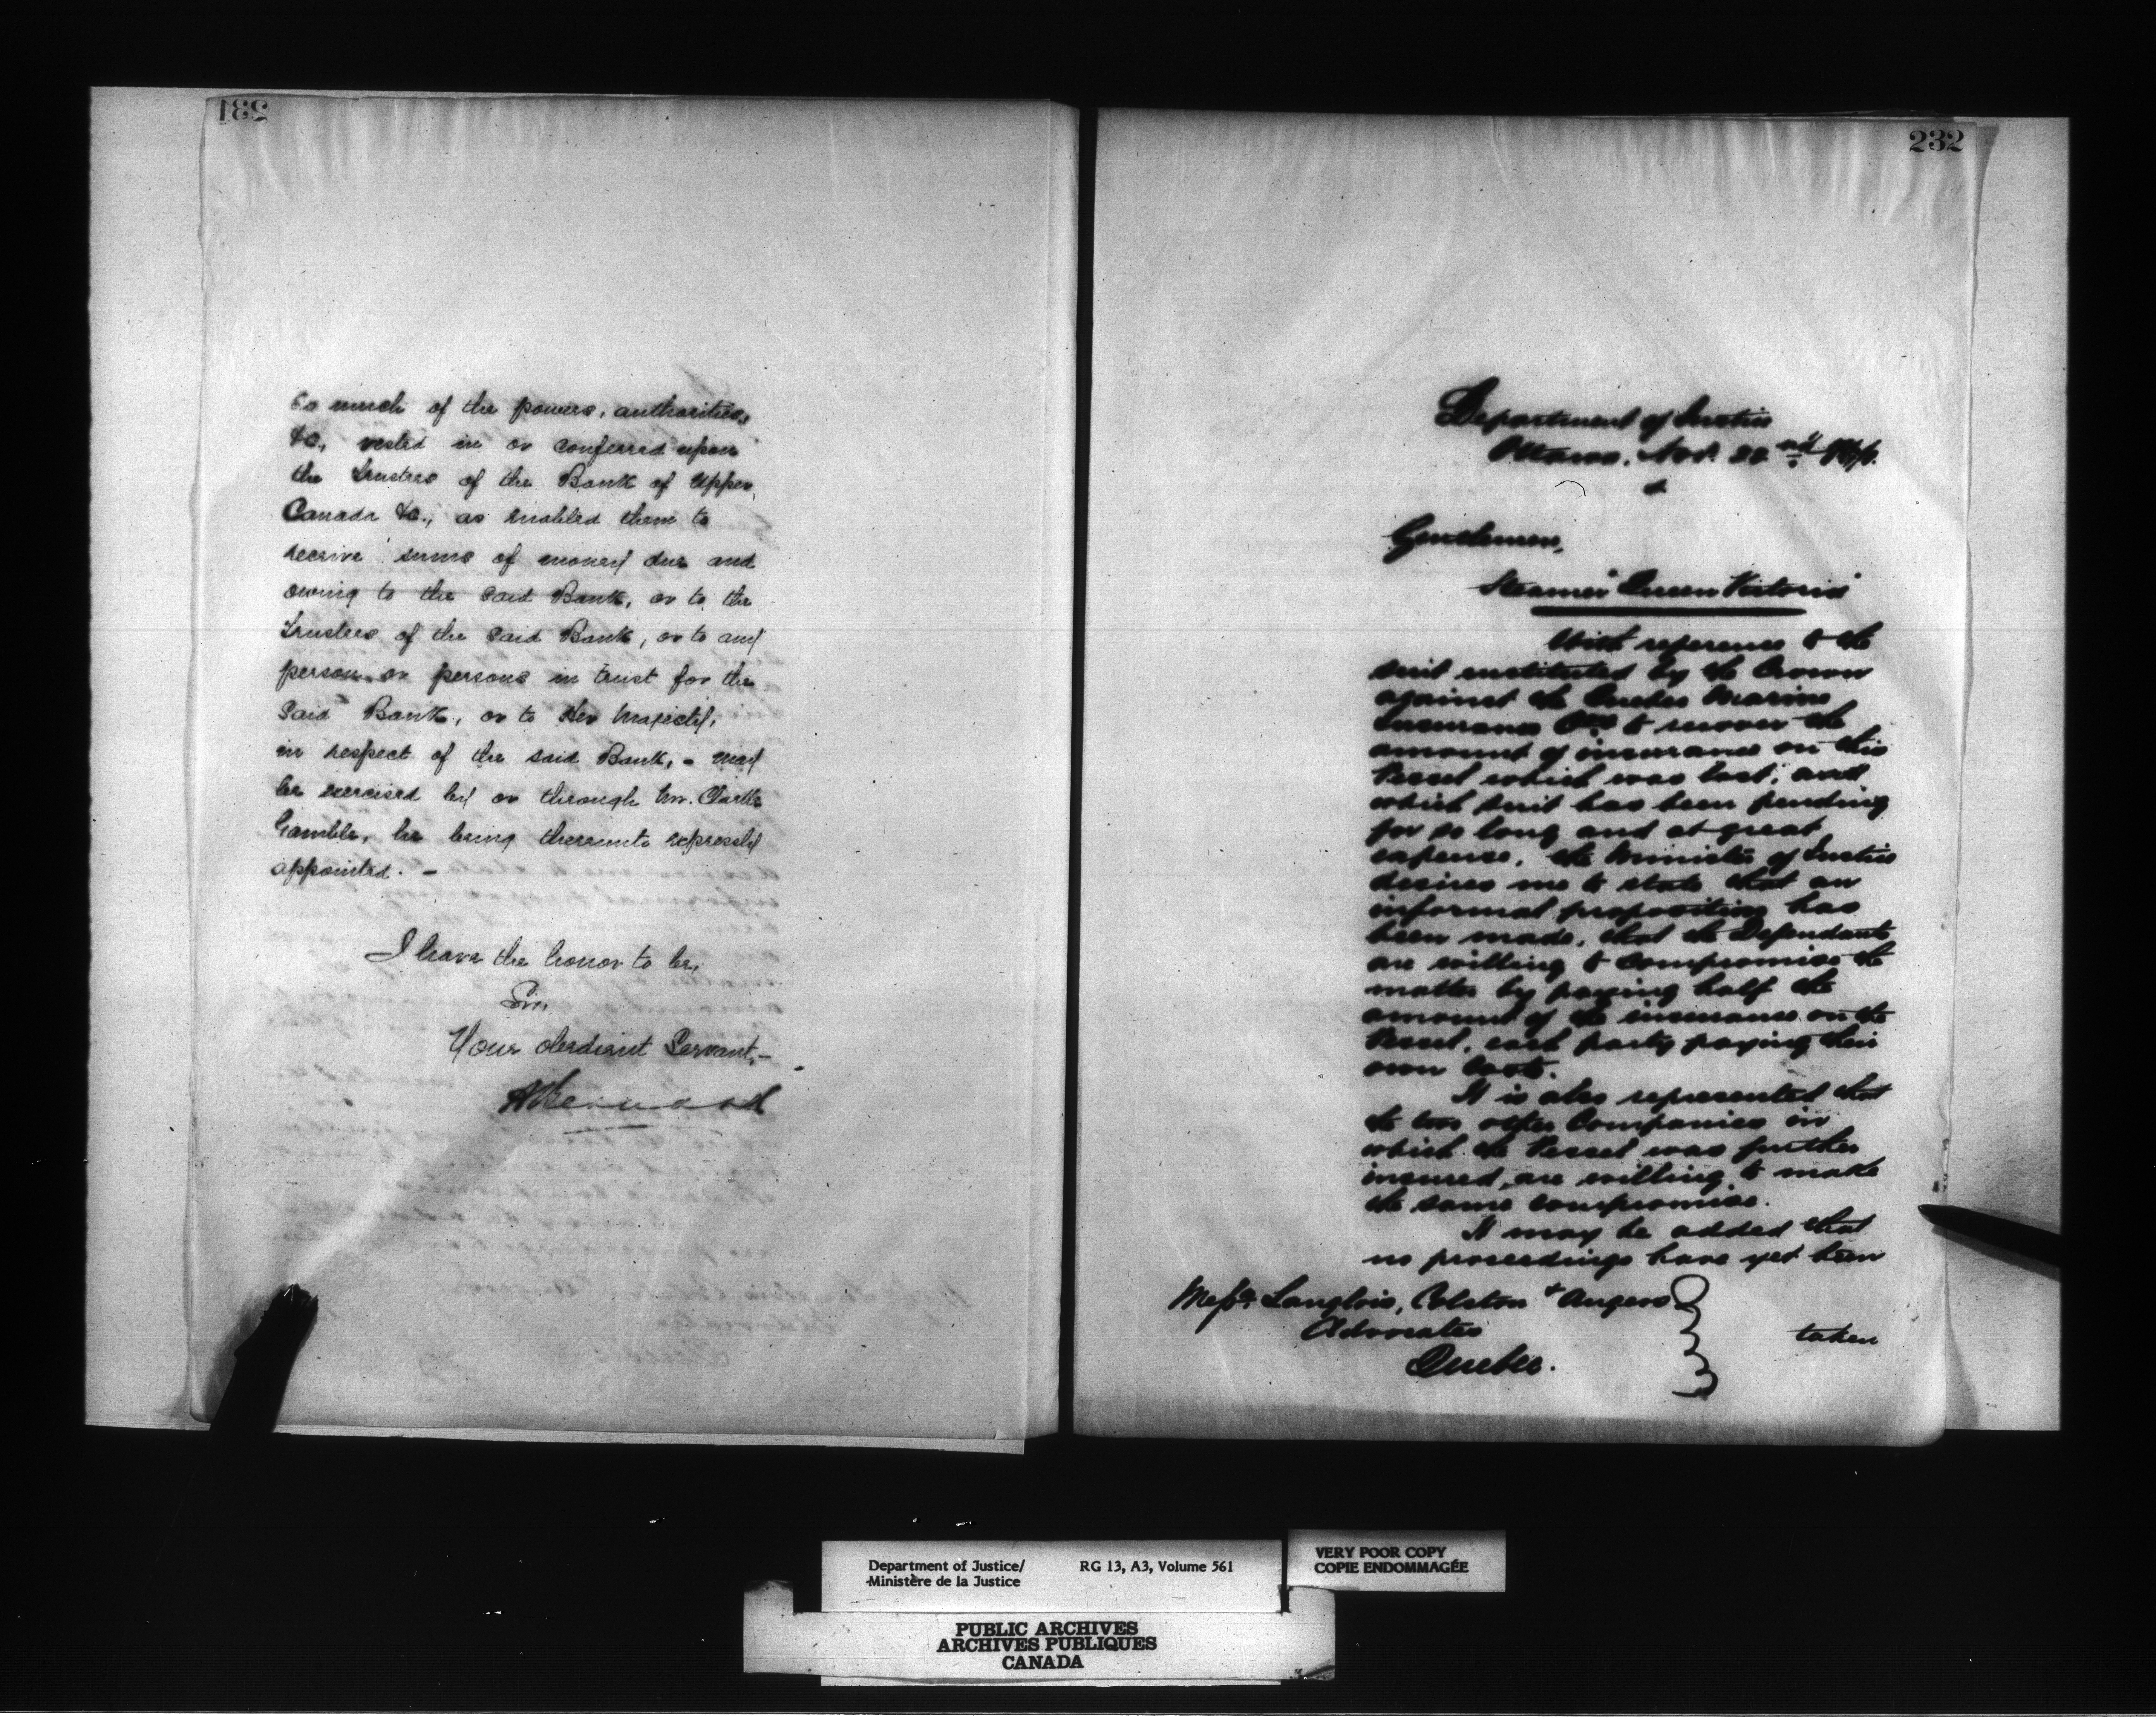 231
So much of the powers, authorities,
&c., vested in or conferred upon
the Trustees of the Bank of Upper
Canada &c., as enabled them to
receive sums of money due and
owing to the said Bank, or to the
Trustees of the said Bank, or to any
person or persons in trust for the
said Bank, or to Her Majesty,
in respect of the said Bank, - may
be exercised by or through Mr. Clarke
Gamble, he being thereunto expressly
appointed. -
I have the honor to be,
Sir,
Your obedient Servant, -
232
Department of Justice
Ottawa, Nov. 22nd
Gentlemen,
Steamer "Queen Victoria"
With reference to the
suit instituted by the Crown
against the Quebec Marine
Insurance Coy to recover the
amount of insurance on this
Vessel which was lost, and
which suit has been pending
for so long and at great
expense, the Minister of Justice
desires me to state that an
informal proposition has
been made, that the Defendants
are willing to compromise the
matter by paying half the
amount of the insurance on the
Vessel, each party paying their
own costs.
It is also represented that
the two other Companies in
which the Vessel was further
insured, are willing to make
the same compromise.
It may be added that
no proceedings have yet been
Messrs. Langlois, Colston & Angers
Advocates
Quebec.
taken
Department of Justice/ RG 13, A3, Volume 561
Ministère de la Justice
VERY POOR COPY
COPIE ENDOMMAGÉE
PUBLIC ARCHIVES
ARCHIVES PUBLIQUES
CANADA